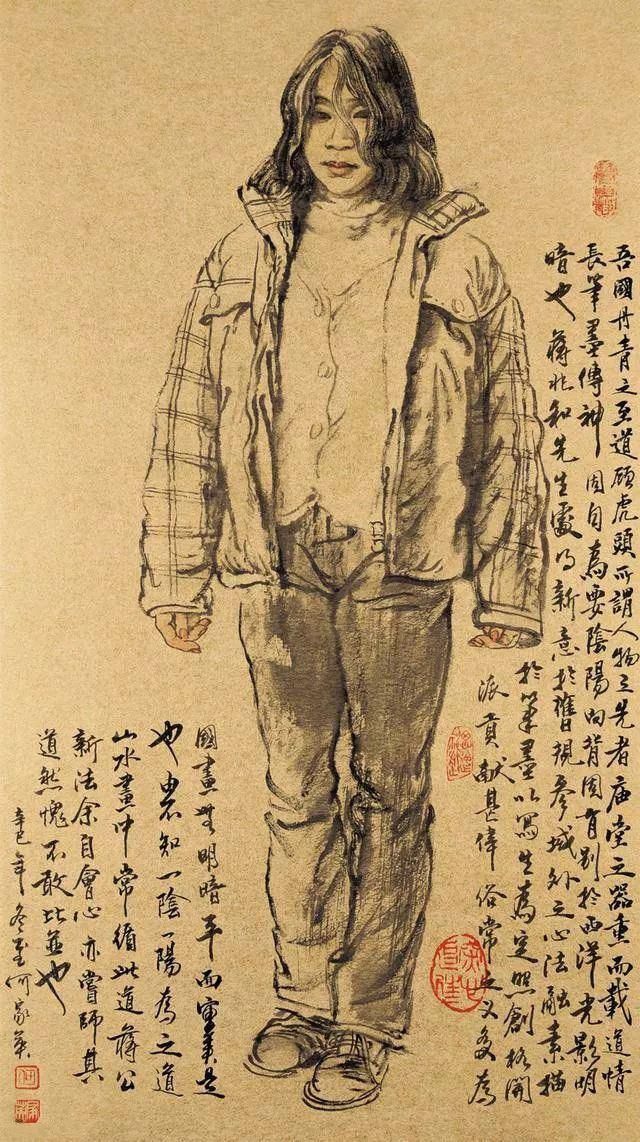 吾國丹青之至道顧虎頭所謂人物之先者庙堂之器重而載道情
長筆墨傳神固自為要陰陽向背固有別於西洋光影明
暗也蔣兆和先生新意於舊規參域外之心法融素描
於筆墨以寫生為定照創格開
派貢獻甚偉俗常之又多為
國畫無明暗平而重美是
也不知一陰一陽為之道
山水畫中常循此道蔣公
新法余自會心亦嘗師其
道然愧不敢比並也
辛巳年冬至何家英